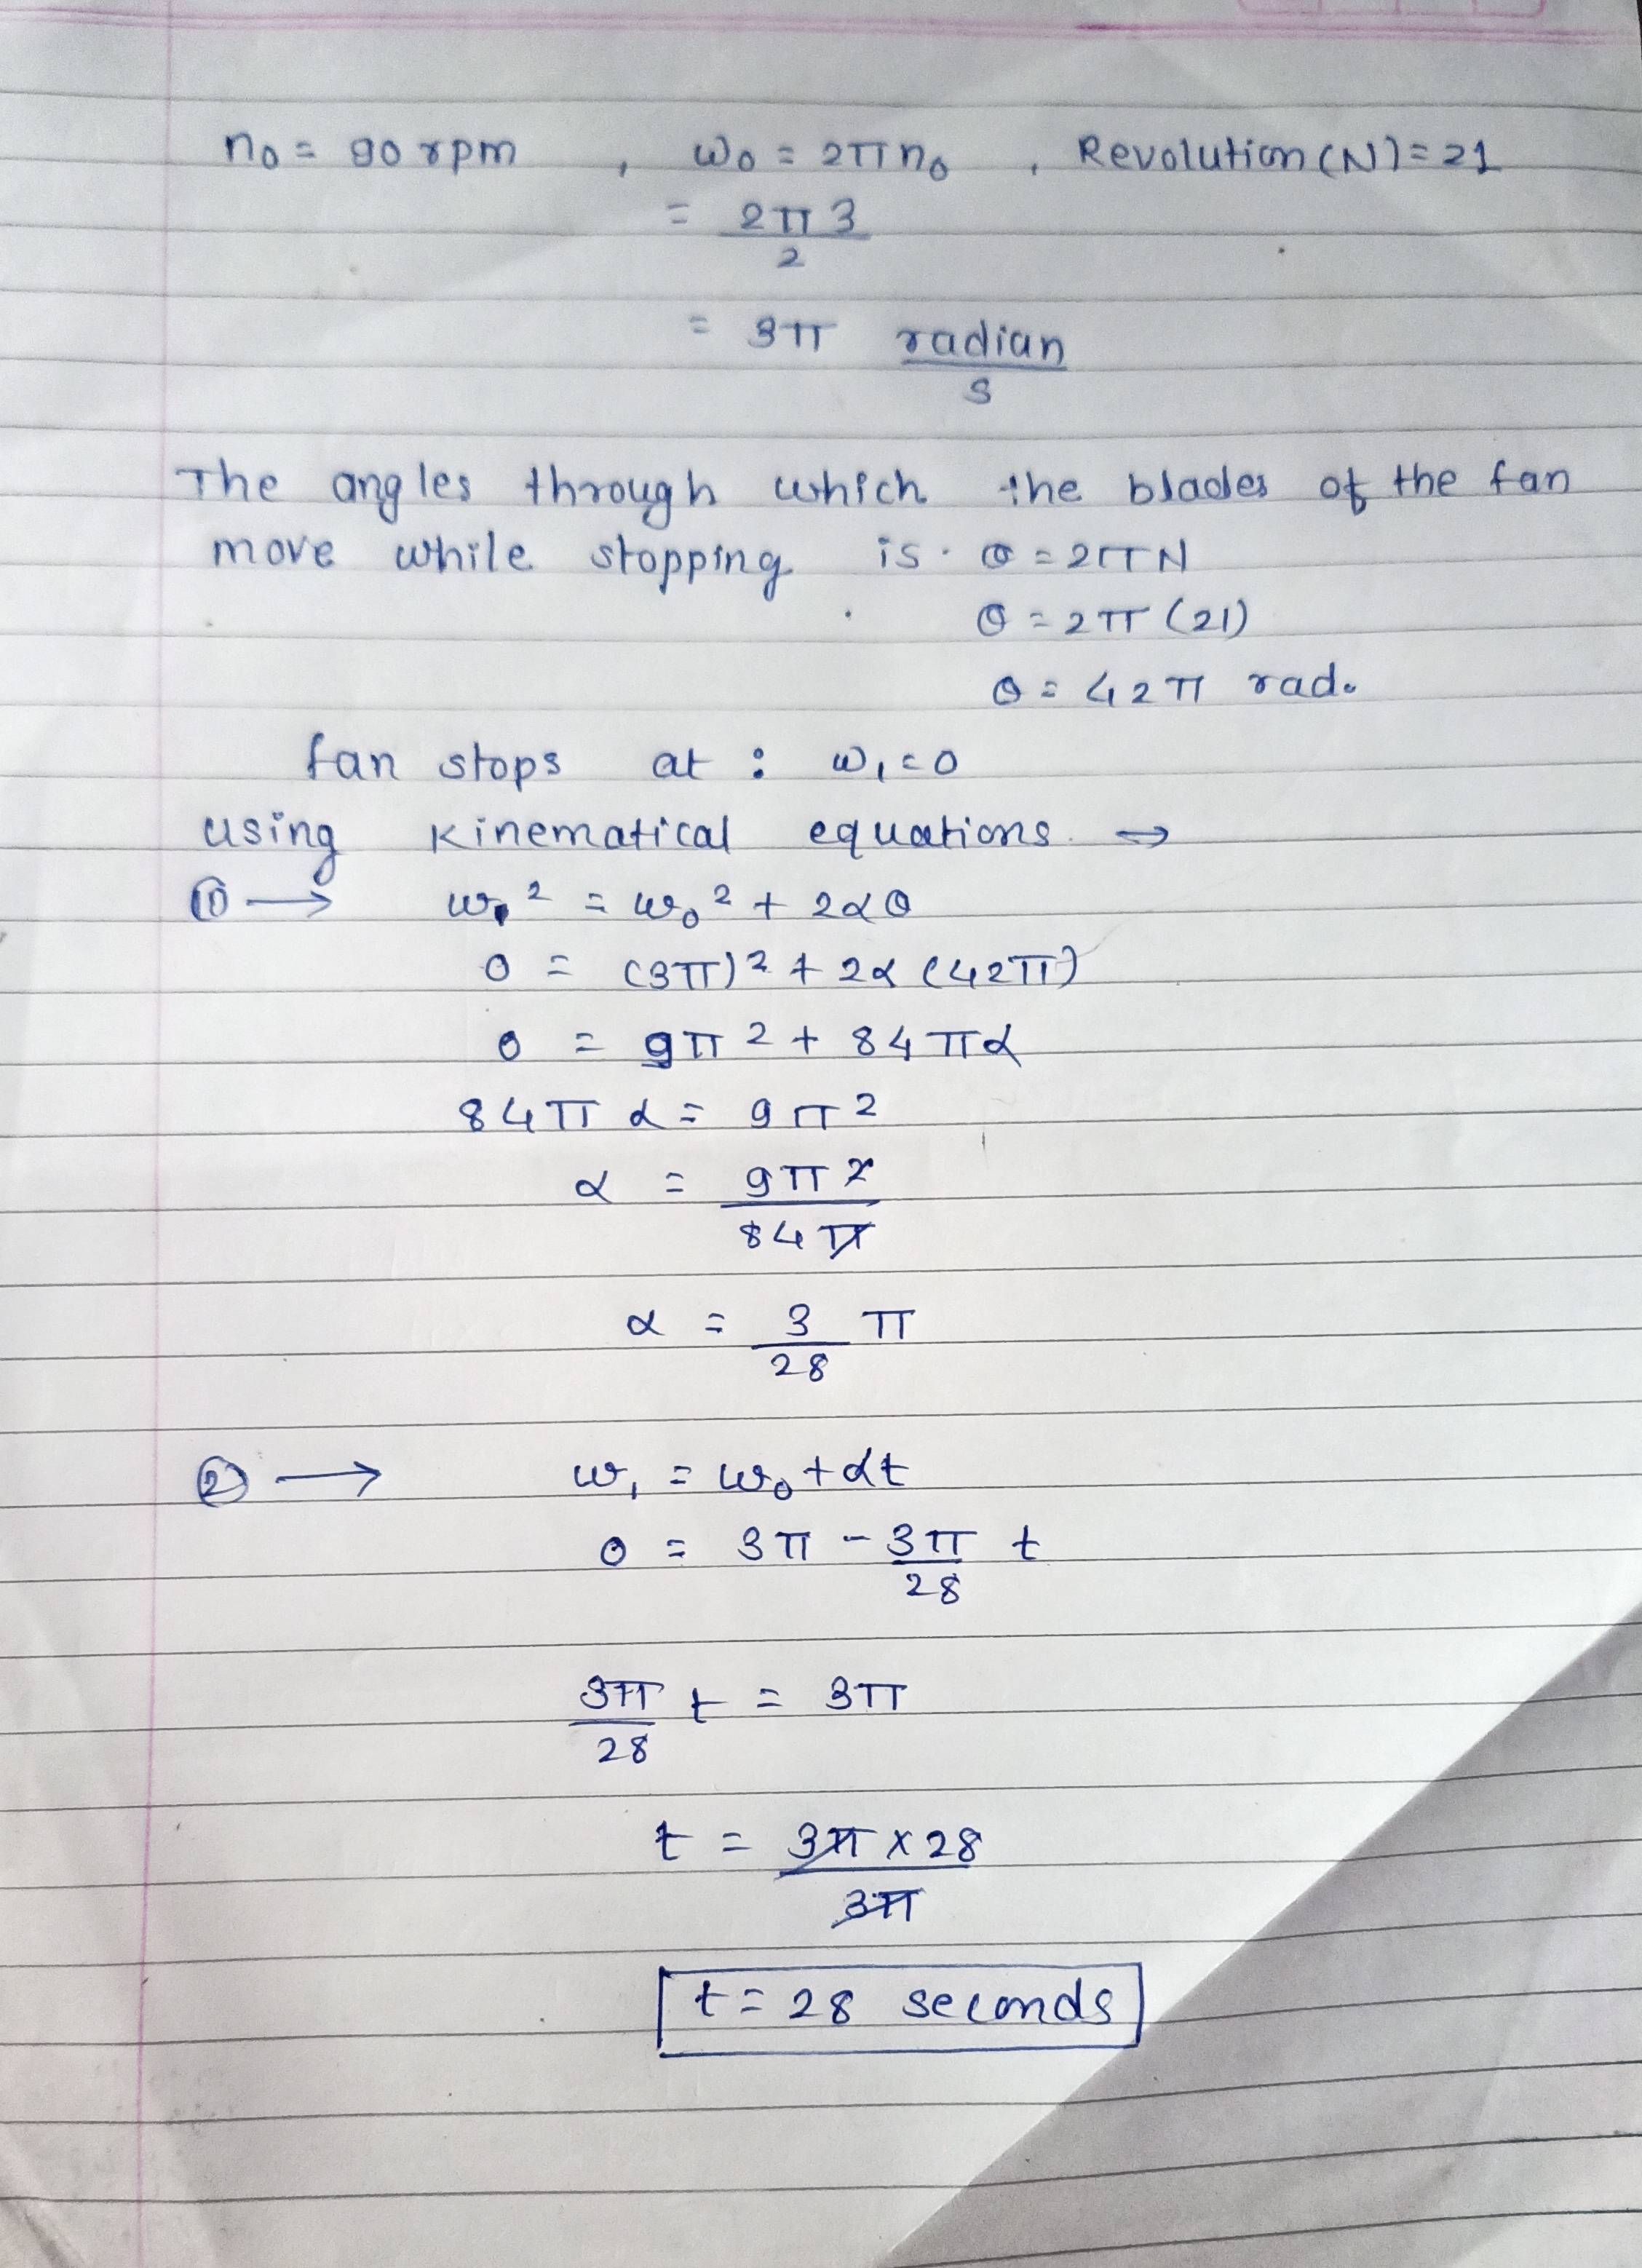 n₀ = 90 rpm , ω₀ = 2πn₀ , Revolution (N) = 21
= 2π3/2
= 3π radian/s
The angles through which the blades of the fan
move while stopping is. θ = 2πN
θ = 2π (21)
θ = 42π rad.
fan stops at : ω₁ = 0
using kinematical equations →
① → ω₁² = ω₀² + 2αθ
0 = (3π)² + 2α (42π)
0 = 9π² + 84πα
84πα = 9π²
α = 9π²/84π
α = 3/28 π
② → ω₁ = ω₀ + αt
0 = 3π - 3π/28 t
3π/28 t = 3π
t = 3π × 28/3π
t = 28 seconds